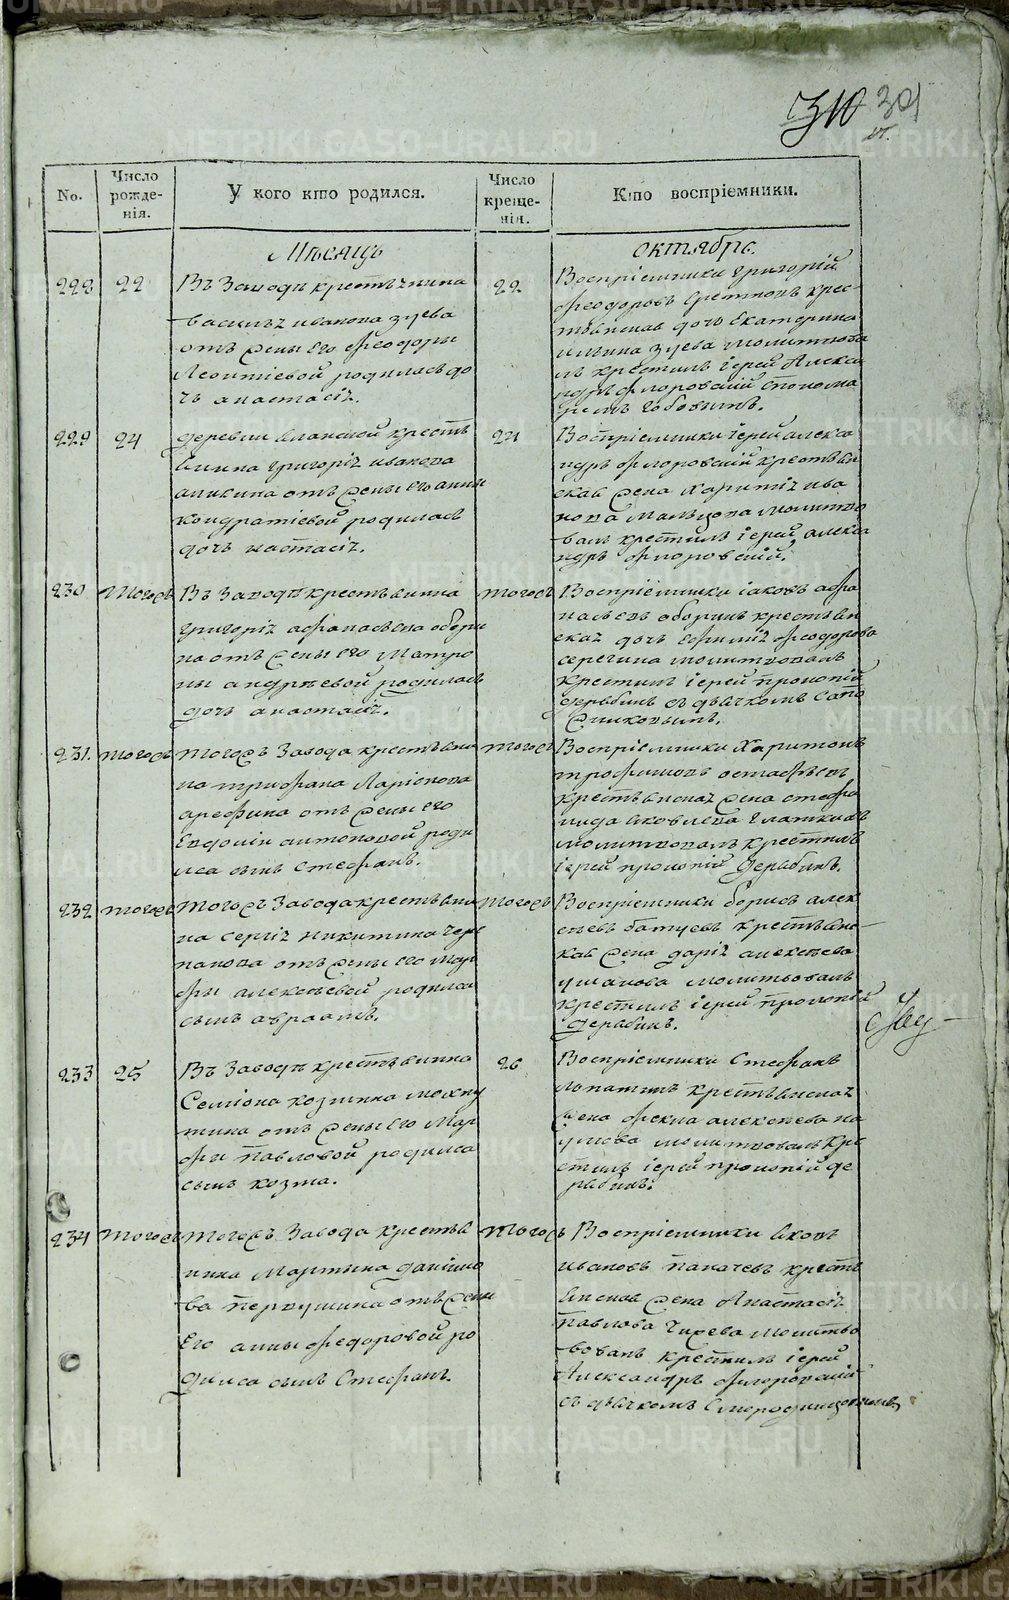 310 301
No.
Число рожде-
нія.
У кого кто родился.
Число креще-
нія.
Кто воспріемники.
Мѣсяцъ
октябрь.
228
22
Въ Заводѣ крестьянина
василья иванова зуева
отъ жены его Феодоры
Леонтіевой родилась до
чь анастасія.
22
Воспріемники григорій
феодоровъ крес-
тьянская дочь Екатерина
ильина зуева молитвова
лъ крестилъ іерей Алекса
ндръ флоровскій
229
24
деревни крестья
янина григорія иванова
аникина отъ жены его анны
кондратіевой родилась
дочь настасія.
24
Воспріемники іерей алекса
ндръ флоровскій крестьян
ская жена Харитинія ива
нова мальцова молитво
валъ крестилъ іерей алекса
ндръ флоровскій.
230
Тогожъ
Въ Заводѣ крестьянина
григорія афанасьева обори
на отъ жены его Матро
ны андреевой родилась
дочь анастасія.
тогожъ
Воспріемники іаковъ афа
насьевъ оборинъ крестьян
ская дочь Ефимія феодорова
серегина молитвовалъ
крестилъ іерей прокопій
дерябинъ съ дьячкомъ сапо
жниковымъ.
231.
тогожъ
тогожъ Завода крестьяни
на трифана Ларіонова
арефина отъ жены его
Евдокіи антоновой роди
лса сынъ стефанъ.
тогожъ
Воспріемники Харитонъ
трофимовъ остафьевъ
крестьянская жена стефа
нида яковлева
молитвовалъ крестилъ
іерей прокопій дерябинъ.
232
тогожъ
тогожъ Завода крестьяни
на сергія никитина чере
панова отъ жены его мар
фы алексѣевой родилса
сынъ авраамъ.
тогожъ
Воспріемники борисъ алек
сѣевъ батуевъ крестьянс-
кая жена дарія алексѣева
ушакова молитвовалъ
крестилъ іерей прокопій
дерябинъ.
233
25
Въ Заводѣ крестьянина
Семіона козмина
отъ жены его Мар
фы павловой родилса
сынъ козма.
26
Воспріемники Стефанъ
лопатинъ крестьянская
жена фекла алексѣева на
умова молитвовалъ кре
стилъ іерей прокопій де
рябинъ.
234
тогожъ
тогожъ Завода крестья
нина Мартына данило
ва первушина отъ жены
Его анны федоровой ро
дилса сынъ Стефанъ.
тогожъ
Воспріемники яковъ
ивановъ пакачевъ кресть
янская жена Анастасія
павлова молитво
валъ крестилъ іерей
Александръ флоровскій
съ дьячкомъ Смородинцовымъ
METRIKI.GASO-URAL.RU